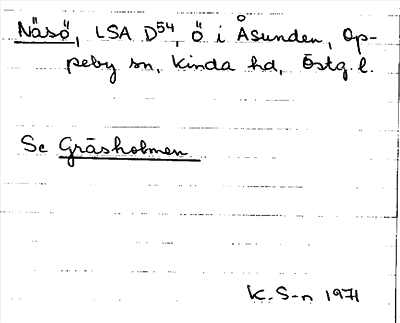 Näsö, LSA D54, ö i Åsunden, Op-
peby sn, Kinda hd, Östg. l.
Se Gräsholmen
K. S-n 1971